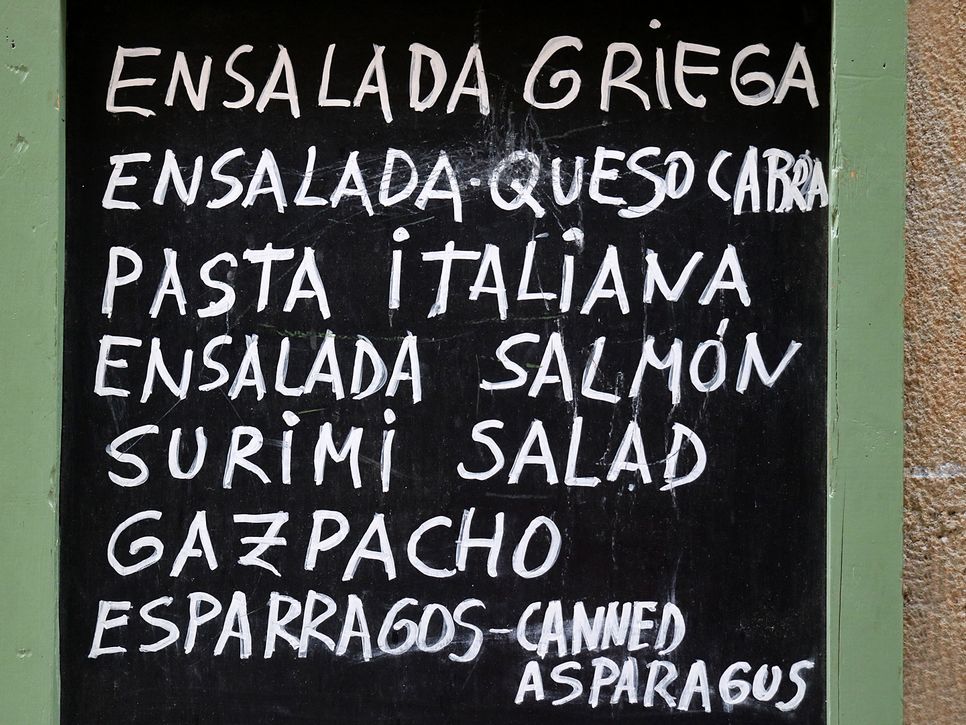 ENSALADA GRIEGA
ENSALADA-QUESO CABRA
PASTA ITALIANA
ENSALADA SALMÓN
SURIMI SALAD
GAZPACHO
ESPARRAGOS-CANNED
ASPARAGUS